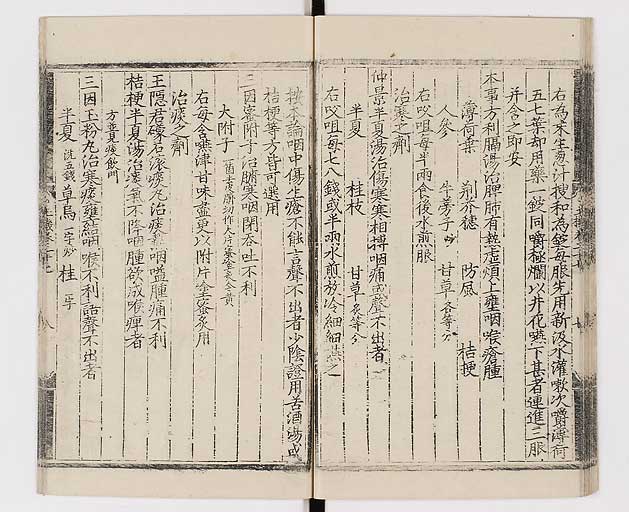 右為末生葱汁搜和為錠每服先用新汲水灌嗽次嚼薄荷
五七葉却用藥一錠同嚼極爛以井花嚥下甚者連進三服
并含之即安
本事方利膈湯治脾肺有熱虛煩上壅咽喉瘡腫
薄荷葉 荊芥穗 防風 桔梗
人參 牛蒡子炒 甘草各等分
右㕮咀每半兩食後水煎服
治寒之劑
仲景半夏湯治傷寒寒相搏咽痛或聲不出者
半夏 桂枝 甘草炙等分
右㕮咀每七八錢或半兩水煎放冷細細嚥之
按本論咽中傷生瘡不能言聲不出者少陰證用苦酒湯或
桔梗等方皆可選用
三因蜜附子治腑寒咽閉吞吐不利
大附子
右每含嚥津甘味盡更以附片塗蜜炙用
治痰之劑
王隱君礞石滾痰丸治痰熱咽嗌腫痛不利
桔梗半夏湯治寒氣不降咽腫欲成喉痺者
方並見痰飲門
三因玉粉丸治寒痰壅結咽喉不利語聲不出者
半夏 洗五錢 草烏 一字炒 桂 一字